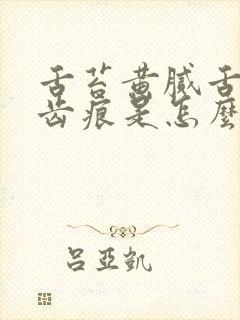 舌苔黄腻舌
齿痕是怎麼
吕亚凯